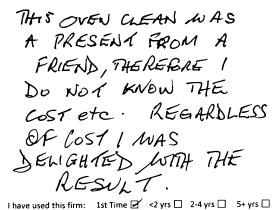 THIS OVEN CLEAN WAS
A PRESENT FROM A
FRIEND, THEREFORE I
DO NOT KNOW THE
COST etc. REGARDLESS
OF COST I WAS
DELIGHTED WITH THE
RESULT.
I have used this firm: 1st Time ☑ <2 yrs ☐ 2-4 yrs ☐ 5+ yrs ☐